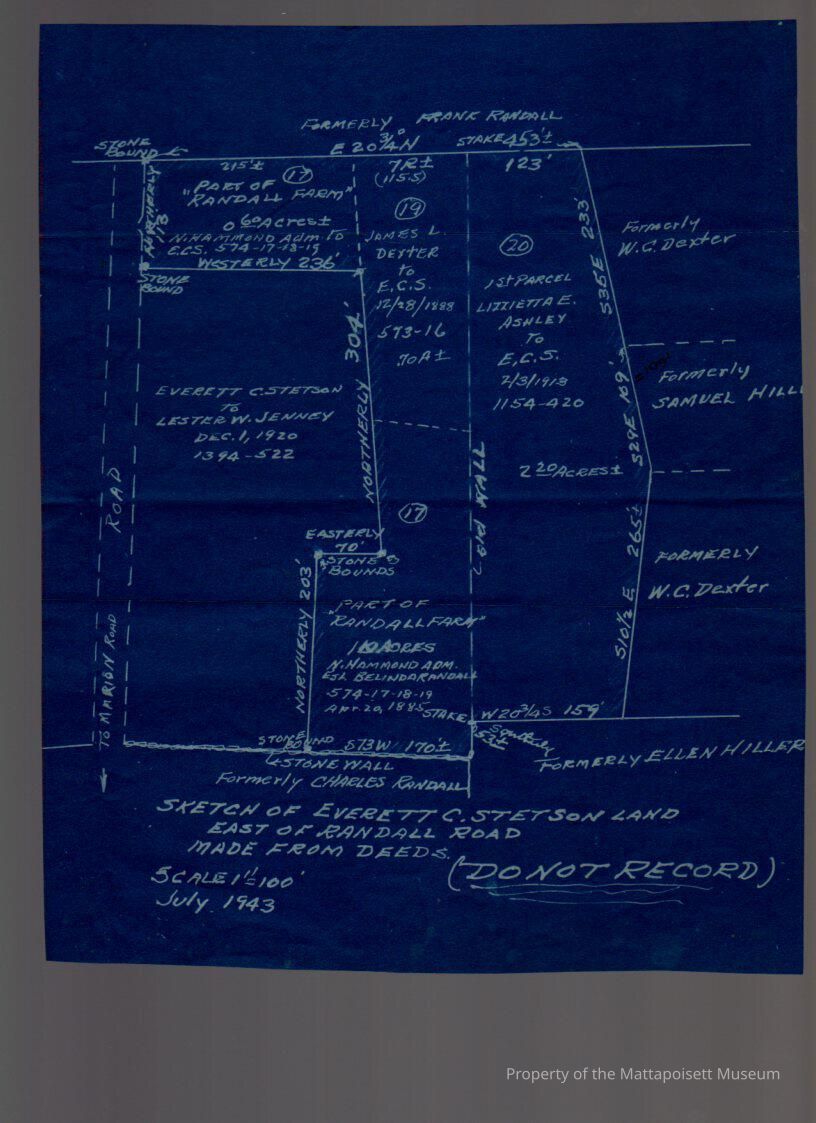 FORMERLY FRANK RANDALL
STONE
BOUND
E 20 3/4° N
STAKE 453'±
215'±
17
"PART OF
RANDALL FARM"
0 60 Acres±
N. HAMMOND Adm. to
E.C.S. 574-17-18-19
WESTERLY 236'
NORTHERLY
178'
STONE
BOUND
7R±
(115.5)
19
JAMES L.
DEXTER
to
E.C.S.
12/28/1888
573-16
.70A±
123'
20
1st PARCEL
LIZZIETTA E.
ASHLEY
TO
E.C.S.
2/3/1913
1154-420
2 20 ACRES±
S35E 233'
S29E 109'
S10 1/2 E 265'±
Formerly
W.C. Dexter
Formerly
SAMUEL HILL
FORMERLY
W.C. Dexter
NORTHERLY 304'
EVERETT C. STETSON
TO
LESTER W. JENNEY
DEC. 1, 1920
1394-522
ROAD
TO MARION ROAD
old WALL
17
EASTERLY
70'
STONE
BOUNDS
NORTHERLY 203'
"PART OF
RANDALL FARM"
ACRES
N. HAMMOND ADM.
Est. BELINDA RANDALL
574-17-18-19
Apr. 20, 1885
STAKE
W 20 3/4 S 159'
Southerly
53'±
FORMERLY ELLEN HILLER
STONE
BOUND
S73W 170'±
STONE WALL
Formerly CHARLES RANDALL
SKETCH OF EVERETT C. STETSON LAND
EAST OF RANDALL ROAD
MADE FROM DEEDS.
(DO NOT RECORD)
SCALE 1"=100'
July 1943
Property of the Mattapoisett Museum